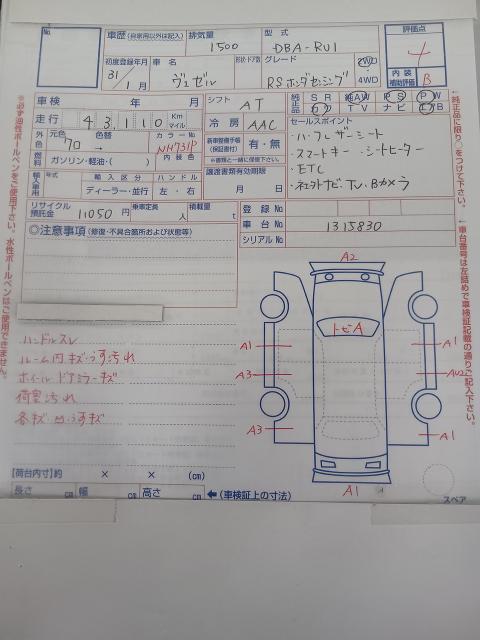 No.
車歴 (自家用以外は記入)
排気量 1500
型式 DBA-RU1
評価点 4
初度登録年月 31/1月
車名 ヴェゼル
形状・ドア数
グレード RSホンダセンシング
2WD・4WD
内装補助評価 B
車検 年 月
シフト AT
純正品 SR AW PS PW
革 TV ナビ エアB
走行 43,110 Km マイル
冷房 AAC
セールスポイント
・ハーフレザーシート
・スマートキー・シートヒーター
・ETC
・ネットナビ・TV・Bカメラ
外色 元色 70 色替 →
カラーNo NH731P
新車整備手帳(保証書付) 有・無
※書類と一緒にご使用下さい。
燃料 ガソリン・軽油・( )
内装色
譲渡書類有効期限 月 日
輸入車用 年式
輸入区分 ディーラー・並行
ハンドル 左・右
リサイクル預託金 11050円
乗車定員 人
積載量 t
登録No
車台No 1315830
シリアルNo
◎注意事項 (修復・不具合箇所および状態等)
ハンドルスレ
ルーム内キズ・うす汚れ
ホイールドアミラーキズ
荷室汚れ
各キズ・凹・うすキズ
A2
トビA
A1
A1
A3
AU2
A3
A1
A1
【荷台内寸】約 × × (cm)
長さ cm 幅 cm 高さ cm ←(車検証上の寸法)
スペア
※必ず油性ボールペンをご使用下さい。水性ボールペンはご使用できません。
←純正品に限り○をつけて下さい。
←車台番号は左詰めで車検証記載の通りご記入下さい。